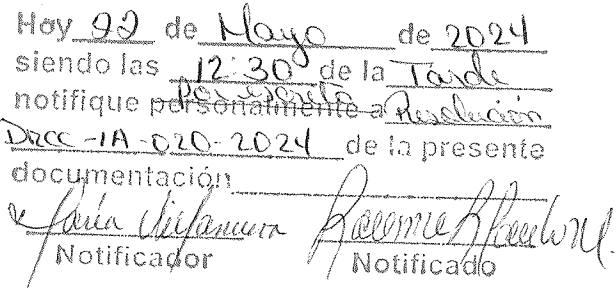 Hoy 22 de Mayo de 2024
siendo las 12:30 de la Tarde
Por escrito
notifique personalmente a Resolución
DRCC-IA-020-2024 de la presente
documentación
Notificador Notificado